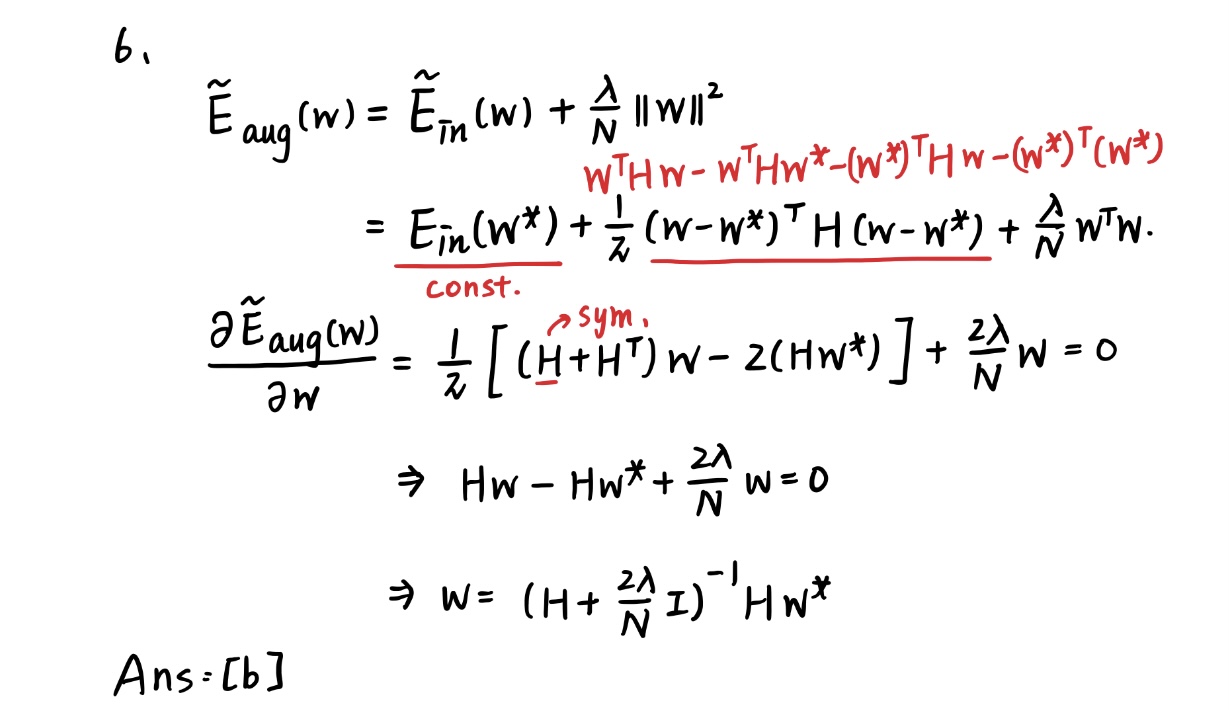 6.
Ẽ_aug(w) = Ẽ_in(w) + λ/N ||w||²
w^T H w - w^T H w* - (w*)^T H w - (w*)^T (w*)
= E_in(w*) + 1/2 (w-w*)^T H (w-w*) + λ/N w^T w.
const.
→ sym.
∂Ẽ_aug(w)/∂w = 1/2 [(H+H^T) w - 2(Hw*)] + 2λ/N w = 0
⇒ Hw - Hw* + 2λ/N w = 0
⇒ w = (H + 2λ/N I)^-1 H w*
Ans: [b]